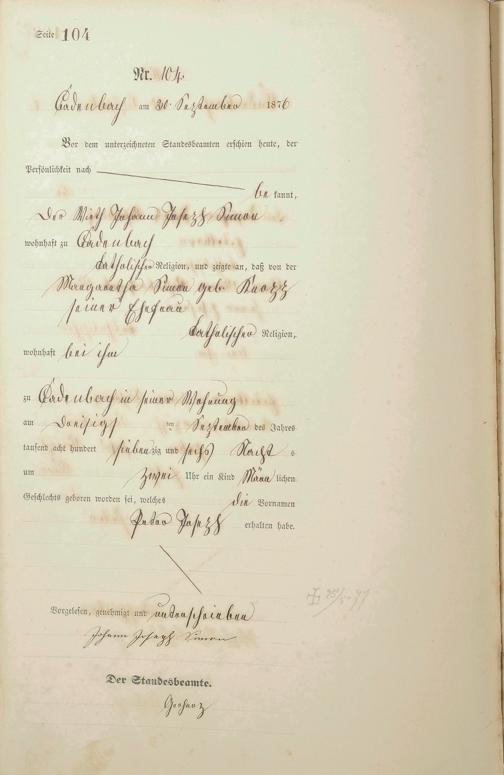 Seite 104
Nr. 104.
Cadenbach am 30. September 1876
Vor dem unterzeichneten Standesbeamten erschien heute, der
Persönlichkeit nach
be kannt,
Der Wirth Johann Joseph Simon
wohnhaft zu Cadenbach
katholischer Religion, und zeigte an, daß von der
Margaretha Simon geb. Knopp
seiner Ehefrau
katholischer Religion,
wohnhaft bei ihm
zu Cadenbach in seiner Wohnung
am dreisigst ten September des Jahres
tausend acht hundert siebenzig und sechs Nacht s
um zwei Uhr ein Kind Männ lichen
Geschlechts geboren worden sei, welches die Vornamen
Peter Joseph erhalten habe.
Vorgelesen, genehmigt und unterschrieben
Johann Joseph Simon
Der Standesbeamte.
Gerharz